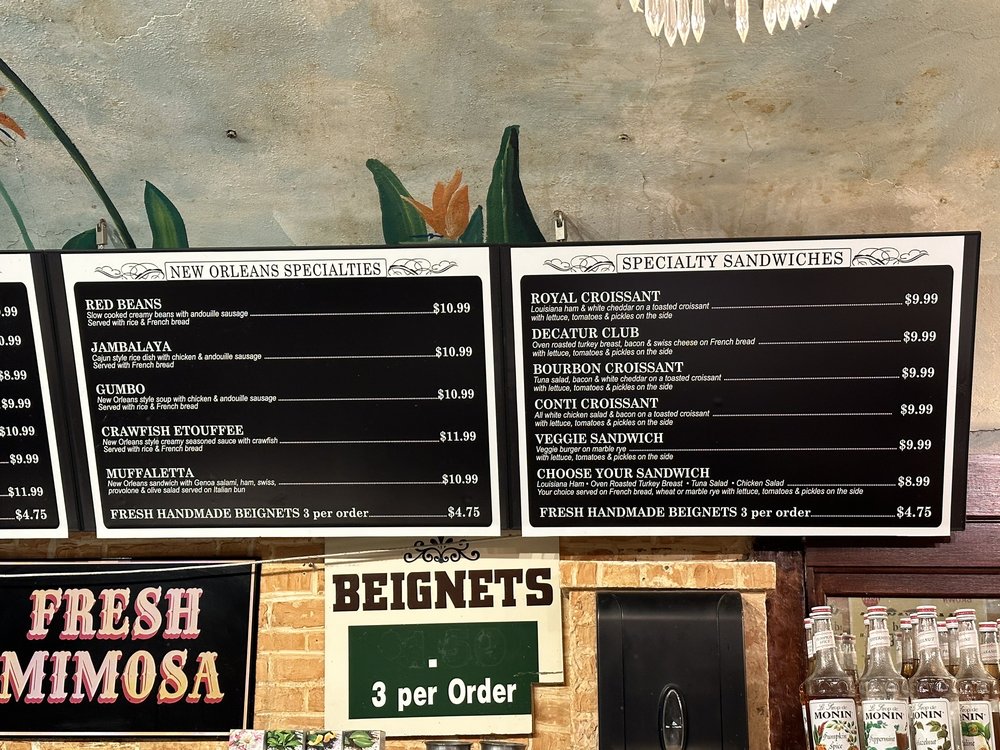 .99
0.99
$8.99
$9.99
$10.99
$9.99
$11.99
$4.75
NEW ORLEANS SPECIALTIES
RED BEANS
Slow cooked creamy beans with andouille sausage $10.99
Served with rice & French bread
JAMBALAYA
Cajun style rice dish with chicken & andouille sausage $10.99
Served with French bread
GUMBO
New Orleans style soup with chicken & andouille sausage $10.99
Served with rice & French bread
CRAWFISH ETOUFFEE
New Orleans style creamy seasoned sauce with crawfish $11.99
Served with rice & French bread
MUFFALETTA
New Orleans sandwich with Genoa salami, ham, swiss, $10.99
provolone & olive salad served on Italian bun
FRESH HANDMADE BEIGNETS 3 per order $4.75
SPECIALTY SANDWICHES
ROYAL CROISSANT
Louisiana ham & white cheddar on a toasted croissant $9.99
with lettuce, tomatoes & pickles on the side
DECATUR CLUB
Oven roasted turkey breast, bacon & swiss cheese on French bread $9.99
with lettuce, tomatoes & pickles on the side
BOURBON CROISSANT
Tuna salad, bacon & white cheddar on a toasted croissant $9.99
with lettuce, tomatoes & pickles on the side
CONTI CROISSANT
All white chicken salad & bacon on a toasted croissant $9.99
with lettuce, tomatoes & pickles on the side
VEGGIE SANDWICH
Veggie burger on marble rye $9.99
with lettuce, tomatoes & pickles on the side
CHOOSE YOUR SANDWICH
Louisiana Ham • Oven Roasted Turkey Breast • Tuna Salad • Chicken Salad $8.99
Your choice served on French bread, wheat or marble rye with lettuce, tomatoes & pickles on the side
FRESH HANDMADE BEIGNETS 3 per order $4.75
FRESH
MIMOSA
BEIGNETS
3 per Order
Le Sirop de
MONIN
Pumpkin
Spice
Le Sirop de
MONIN
Peppermint
Le Sirop de
MONIN
Hazelnut
MONIN